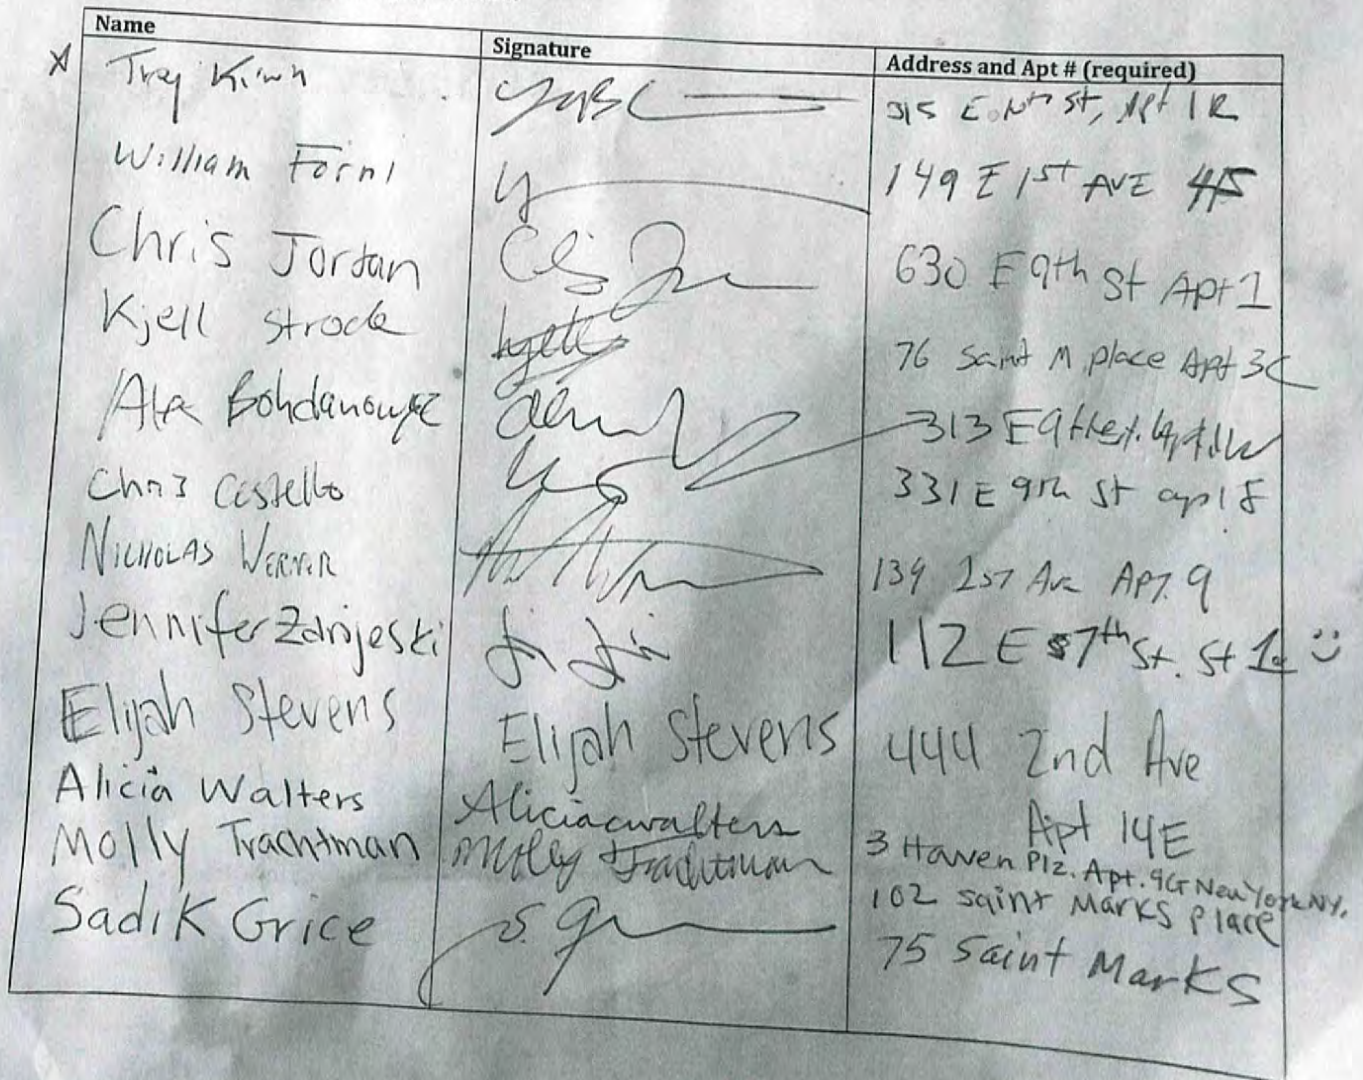 Name Signature Address and Apt # (required)
Trey 315 E St, Apt 1R
William Forni 149 E 1st AVE
Chris Jordan 630 E 9th St Apt 1
Kjell Strode 76 Saint M place Apt 3C
Alex 313 E 9th
Chris Costello 331 E 9th St
NICHOLAS WERNER 139 1st Ave APT. 9
Jennifer 112 E 7th St. St
Elijah Stevens Elijah Stevens 444 2nd Ave
Apt 14E
Alicia Walters Alicia walters 3 Haven Plz. Apt. 9G New York NY.
Molly Trachtman Molly Trachtman 102 Saint Marks Place
Sadik Grice S. G 75 Saint Marks